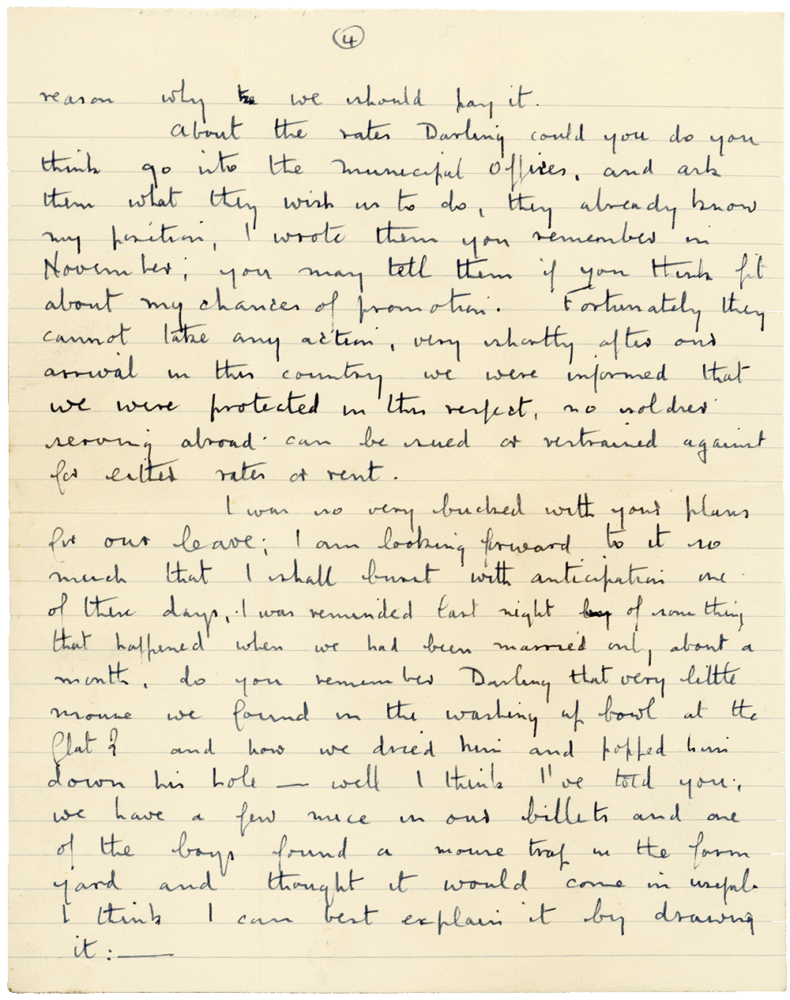 4
reason why we should pay it.
About the rates Darling could you do you
think go into the Municipal Offices, and ask
them what they wish us to do, they already know
my position, I wrote them you remember in
November; you may tell them if you think fit
about my chances of promotion. Fortunately they
cannot take any action, very shortly after our
arrival in this country we were informed that
we were protected in this respect, no soldier
serving abroad can be sued or restrained against
for either rates or rent.
I was so very bucked with your plans
for our leave; I am looking forward to it so
much that I shall burst with anticipation one
of these days, I was reminded last night by of something
that happened when we had been married only about a
month, do you remember Darling that very little
mouse we found in the washing up bowl at the
flat? and how we dried him and popped him
down his hole — well I think I've told you,
we have a few mice in our billets and one
of the boys found a mouse trap in the farm
yard and thought it would come in useful.
I think I can best explain it by drawing
it:—